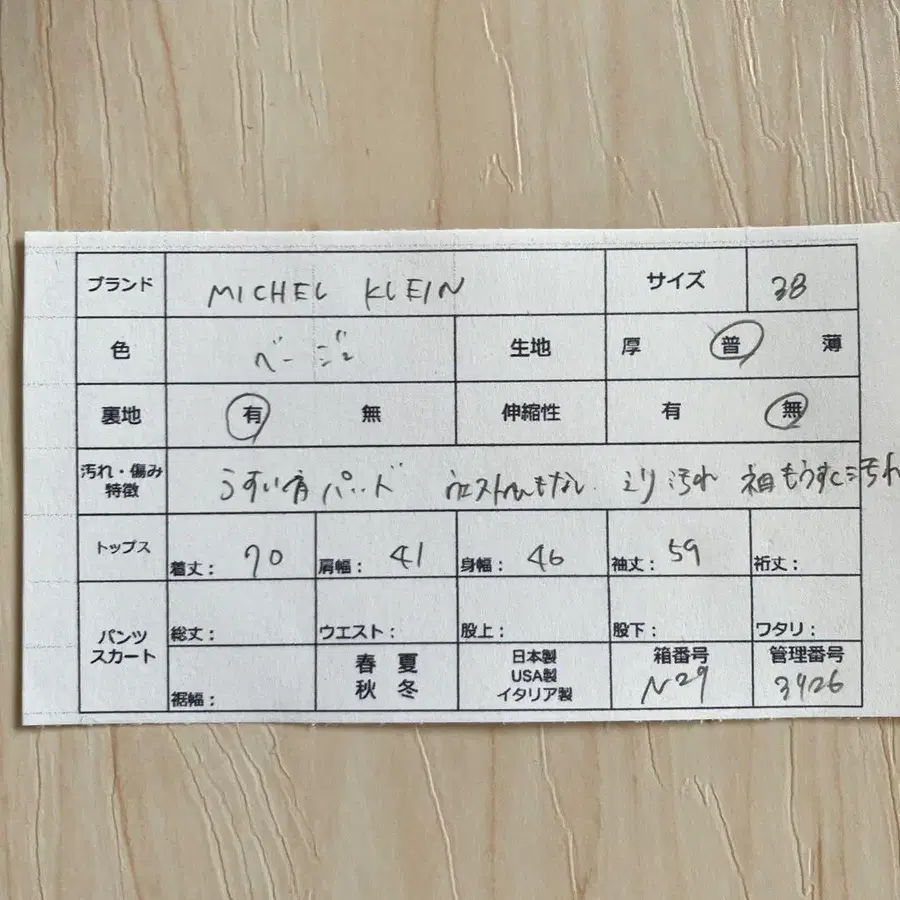 ブランド MICHEL KLEIN サイズ 38
色 ベージュ 生地 厚 普 薄
裏地 有 無 伸縮性 有 無
汚れ・傷み
特徴 うすい肩パッド ウエストひもなし えり汚れ 袖もうすく汚れ
トップス 着丈: 70 肩幅: 41 身幅: 46 袖丈: 59 裄丈:
パンツ
スカート 総丈: ウエスト: 股上: 股下: ワタリ:
裾幅: 春 夏 秋 冬 日本製 USA製 イタリア製 箱番号 N29 管理番号 3426